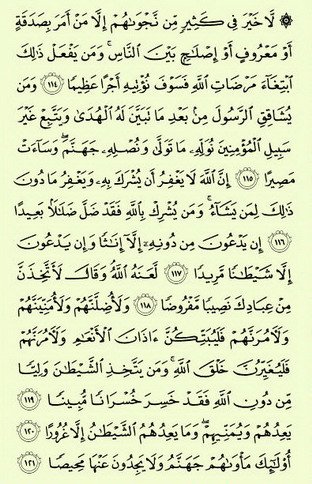 ۞ لَّا خَيْرَ فِى كَثِيرٍ مِّن نَّجْوَىٰهُمْ إِلَّا مَنْ أَمَرَ بِصَدَقَةٍ
أَوْ مَعْرُوفٍ أَوْ إِصْلَٰحٍۭ بَيْنَ النَّاسِ ۚ وَمَن يَفْعَلْ ذَٰلِكَ
ابْتِغَآءَ مَرْضَاتِ اللَّهِ فَسَوْفَ نُؤْتِيهِ أَجْرًا عَظِيمًا ١١٤ وَمَن
يُشَاقِقِ الرَّسُولَ مِنۢ بَعْدِ مَا تَبَيَّنَ لَهُ الْهُدَىٰ وَيَتَّبِعْ غَيْرَ
سَبِيلِ الْمُؤْمِنِينَ نُوَلِّهِۦ مَا تَوَلَّىٰ وَنُصْلِهِۦ جَهَنَّمَ ۖ وَسَآءَتْ
مَصِيرًا ١١٥ إِنَّ اللَّهَ لَا يَغْفِرُ أَن يُشْرَكَ بِهِۦ وَيَغْفِرُ مَا دُونَ
ذَٰلِكَ لِمَن يَشَآءُ ۚ وَمَن يُشْرِكْ بِاللَّهِ فَقَدْ ضَلَّ ضَلَٰلًۢا بَعِيدًا
١١٦ إِن يَدْعُونَ مِن دُونِهِۦٓ إِلَّآ إِنَٰثًا وَإِن يَدْعُونَ
إِلَّا شَيْطَٰنًا مَّرِيدًا ١١٧ لَّعَنَهُ اللَّهُ ۘ وَقَالَ لَأَتَّخِذَنَّ
مِنْ عِبَادِكَ نَصِيبًا مَّفْرُوضًا ١١٨ وَلَأُضِلَّنَّهُمْ وَلَأُمَنِّيَنَّهُمْ
وَلَءَامُرَنَّهُمْ فَلَيُبَتِّكُنَّ ءَاذَانَ الْأَنْعَٰمِ وَلَءَامُرَنَّهُمْ
فَلَيُغَيِّرُنَّ خَلْقَ اللَّهِ ۚ وَمَن يَتَّخِذِ الشَّيْطَٰنَ وَلِيًّا
مِّن دُونِ اللَّهِ فَقَدْ خَسِرَ خُسْرَانًا مُّبِينًا ١١٩
يَعِدُهُمْ وَيُمَنِّيهِمْ ۖ وَمَا يَعِدُهُمُ الشَّيْطَٰنُ إِلَّا غُرُورًا ١٢٠
أُولَٰٓئِكَ مَأْوَىٰهُمْ جَهَنَّمُ وَلَا يَجِدُونَ عَنْهَا مَحِيصًا ١٢١